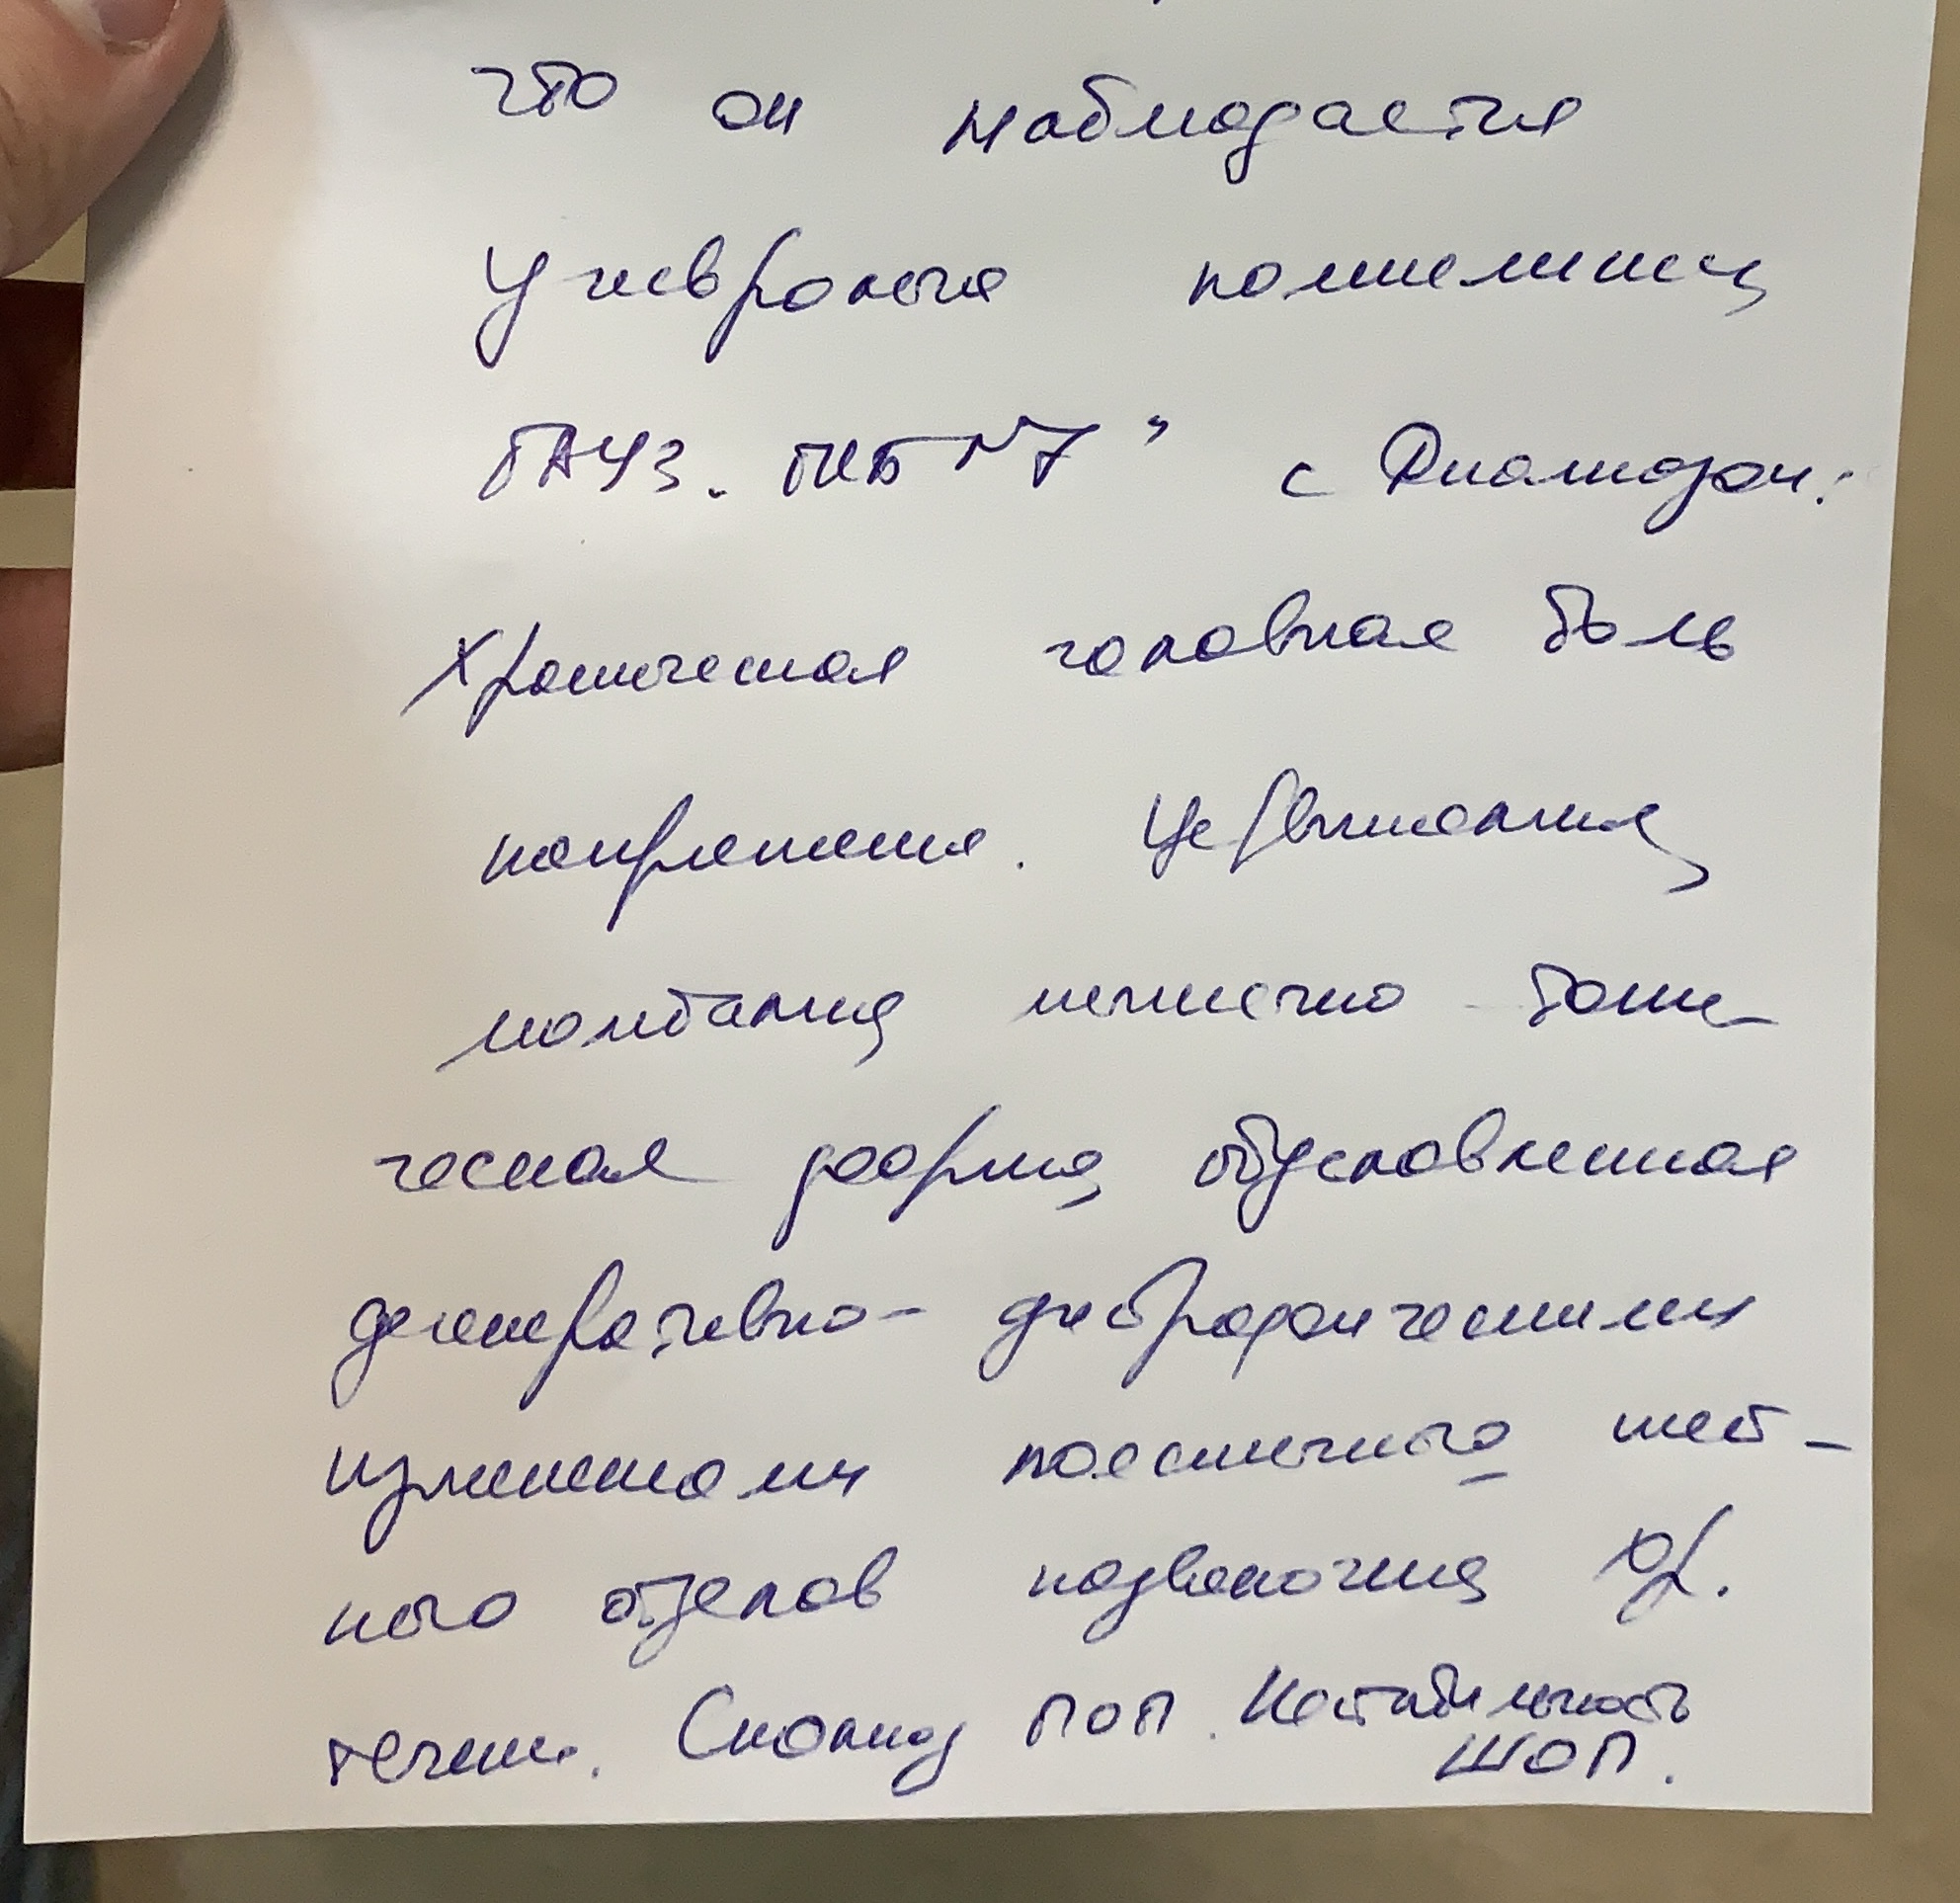 что он наблюдается
у невролога поликлиники
ГАУЗ "ГКБ №7" с Диагнозом:
Хроническая головная боль
напряжения. Цервикалгия
люмбалгия мышечно - тони-
ческая форма обусловленная
дегенеративно- дистрофическими
изменениями поясничного шей-
ного отделов позвоночника хр.
течение. Сколиоз ПОП. Нестабильность
ШОП.